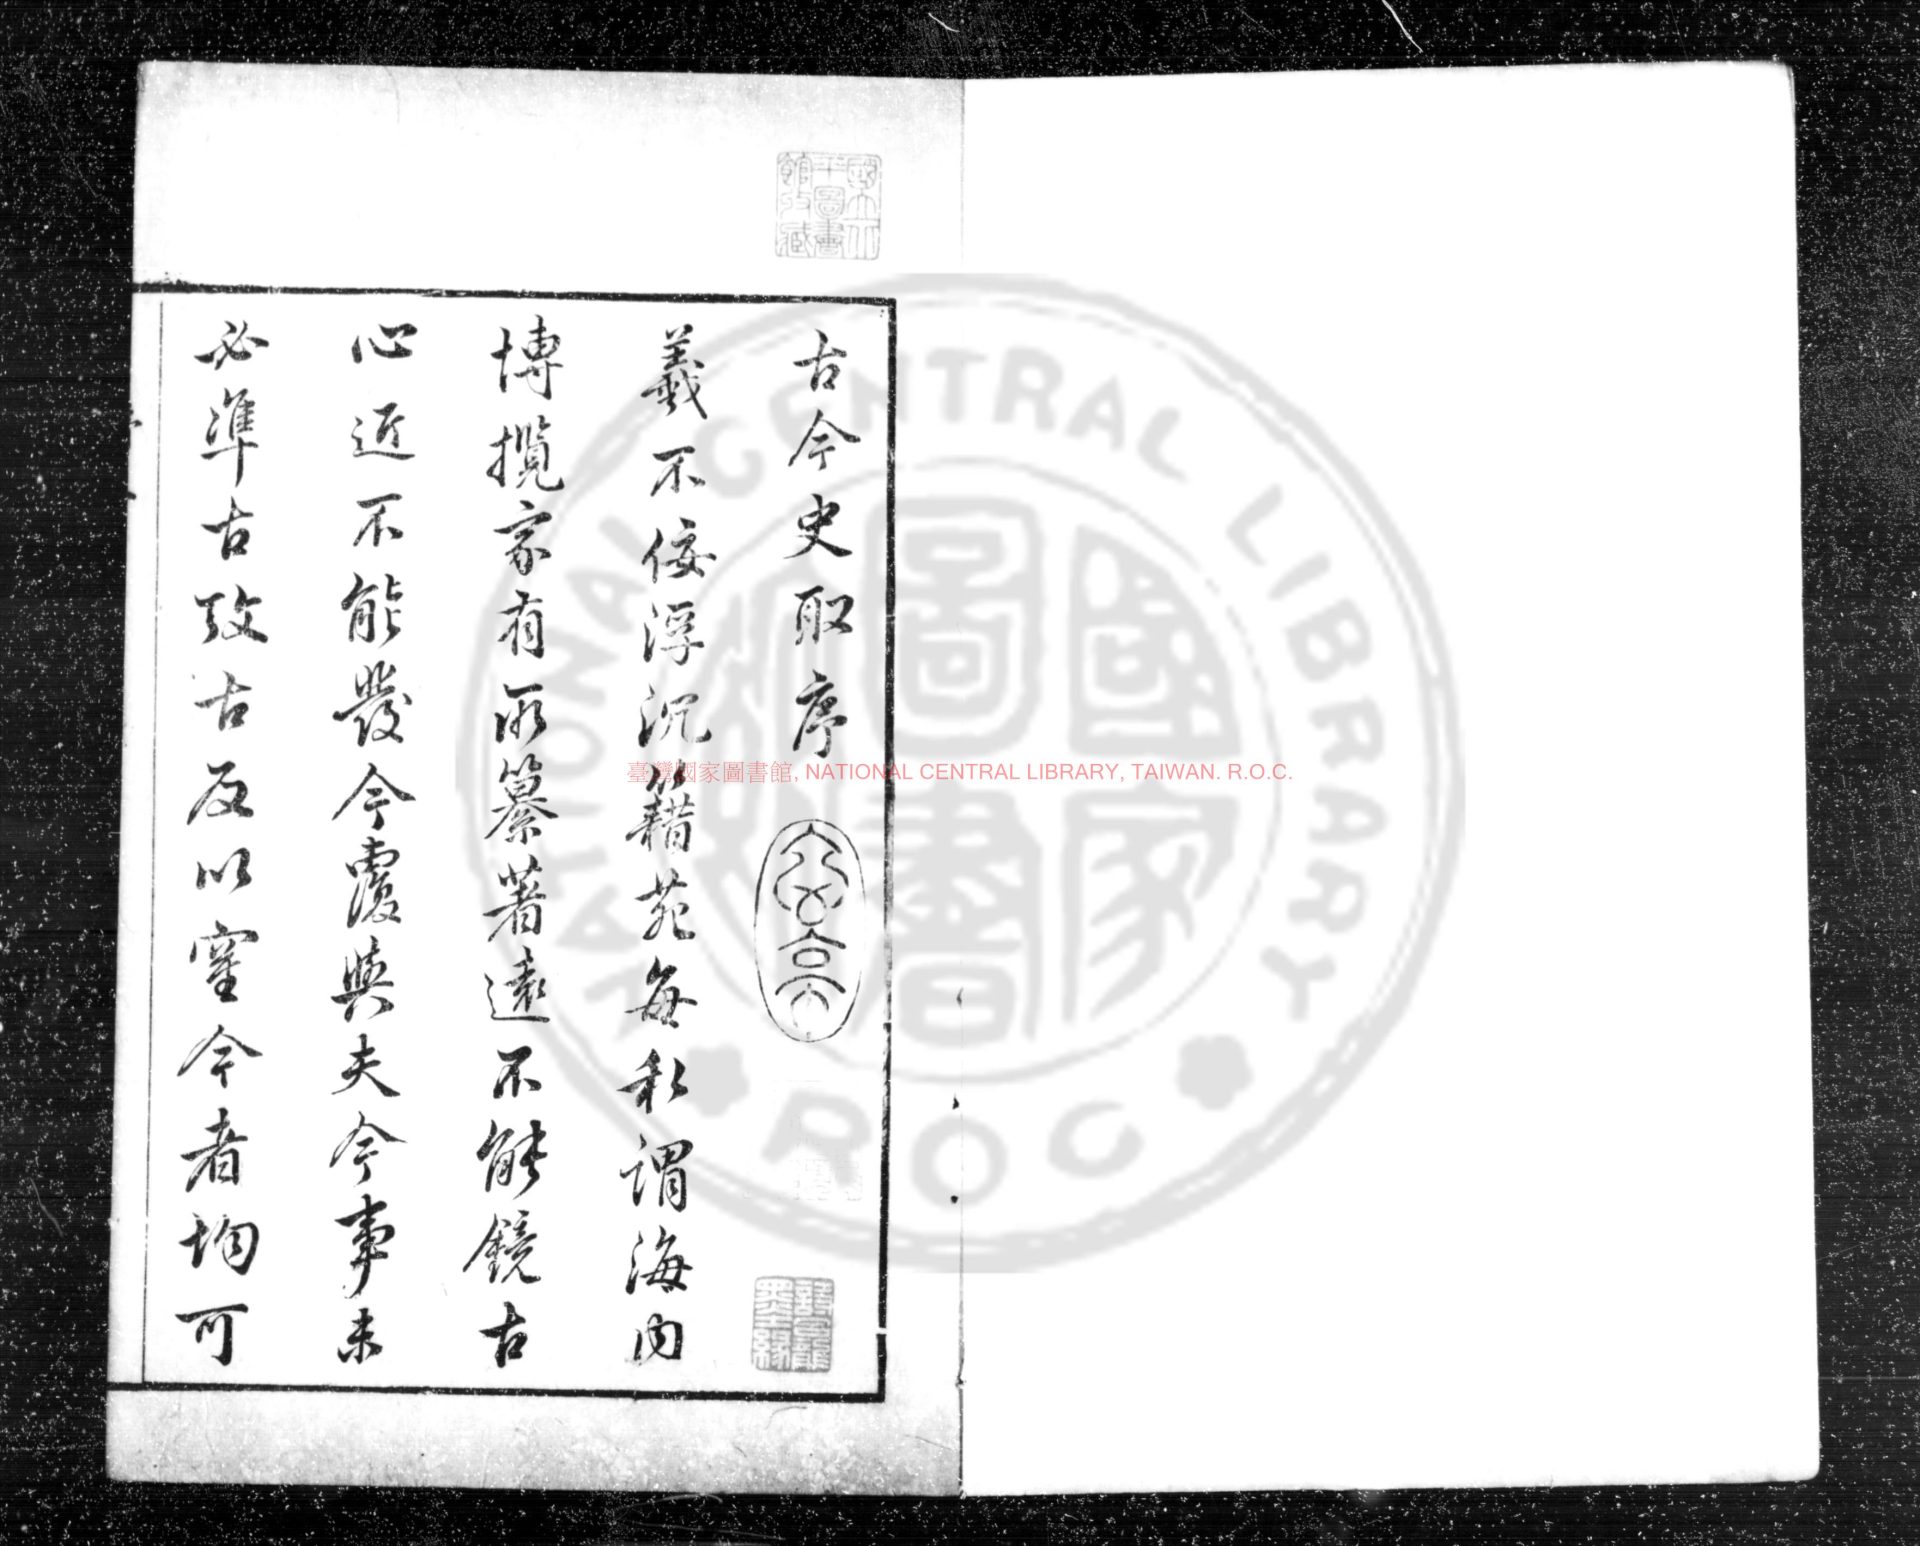 古今史取序
羲不佞浮沉籍苑每私謂海內
博攬家有所纂著遠不能鏡古
心近不能發今覆與夫今事未
必準古效古反以窒今者均可
國立北
平圖書
館收藏
臺灣國家圖書館, NATIONAL CENTRAL LIBRARY, TAIWAN. R.O.C.
NATIONAL CENTRAL LIBRARY
ROC
國家圖書館